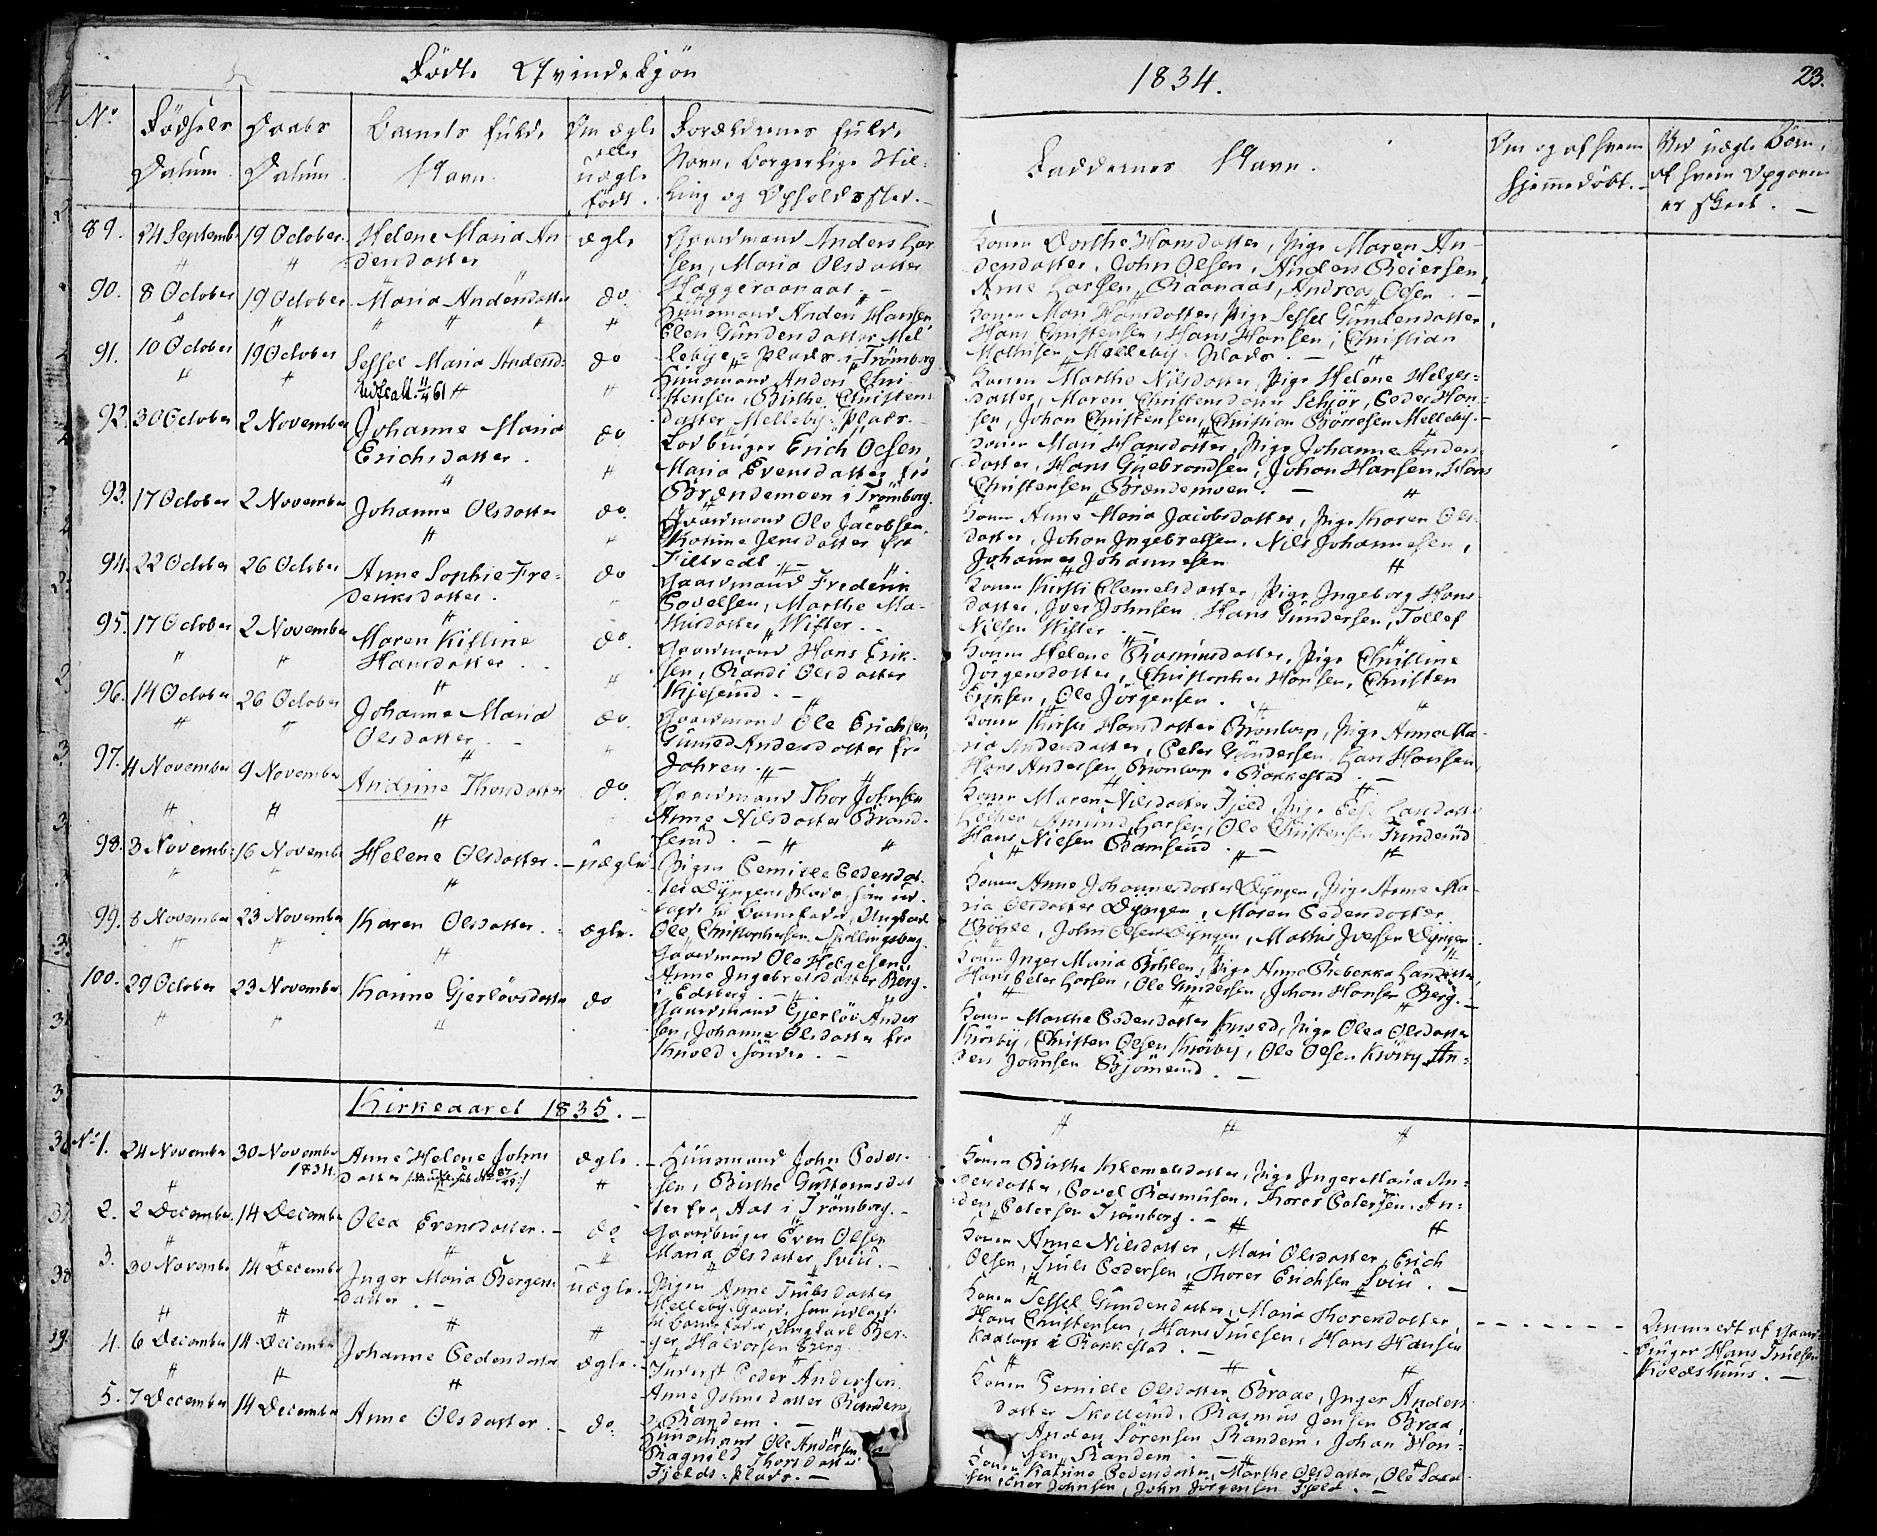 Fødte Qvindekjøn
1834.
23.
No
Fødsels Datum
Daabs Datum
Barnets fulde Navn.
Om ægte eller uægte født.
Forældrenes fulde Navn, borgerlige Stilling og Opholdssted.
Faddernes Navn.
Om og af hvem hjemmedøbt.
Ved uægte Børn, af hvem Opgaven er skeet.
89. 24 Septemb. 19 October. Helene Maria Andersdatter ægte
Gaardmand Anders Larsen, Maria Olsdatter Haggeraanaas.
Konen Dorthe Hansdatter, Pige Maren Andersdatter, John Olsen, Anders Reiersen, Arne Larsen, Raanaas, Andreas Olsen.
90. 8 October 19 October. Maria Andersdatter do
Huusmand Anders Hansen, Elen Gundersdatter Mellebye-Plads i Trømborg
Konen Mari Hansdatter, Pige Sessel Gundersdatter, Hans Christensen, Hans Hansen, Christian Mathisen Mellebye Plads.
91. 10 October 19 October Sessel Maria Andersd: do
Huusmand Anders Christensen, Birthe Christensdatter Mellebye Plads.
Konen Marthe Nilsdatter, Pige Helene Helgesdatter, Maren Christensdatter, Peder Hansen, Johan Christensen, Christian Børresen Melleby.
92. 30 October 2 November Johanne Maria Erichsdatter. do
Forbruger Erich Olsen, Maria Evensdatter fra Brændemoen i Trømborg.
Konen Mari Hansdatter, Pige Johanne Andersdatter, Hans Gulbrandsen, Johan Hansen, Hans Christensen Brændemoen.
93. 17 October 2 November Johanne Olsdatter do.
Gaardmand Ole Jacobsen, Karine Jensdatter fra
Konen Anne Maria Jacobsdatter, Pige Karen Olsdatter, Johan Ingebretsen, Nils Johannesen, Johannes Johannesen
94. 22 October 26 October Anne Sophie Fredriksdatter. do
Gaardmand Frederik Povelsen, Marthe Mathisdatter, Wister.
Konen Kirsti Clemetsdatter, Pige Ingeborg Hansdatter, Iver Johnsen, Hans Gundersen, Tollef Nilsen Wister
95. 17 October 2 November Maren Kistine Hansdatter. do.
Gaardmand Hans Eriksen, Randi Olsdatter Kjeserud.
Konen Helene Rasmusdatter, Pige Christine Jørgensdatter, Christopher Hansen, Christen Eriksen, Ole Jørgensen.
96. 14 October 26 October Johanne Maria Olsdatter. do.
Gaardmand Ole Erichsen, Gunild Andersdatter fra Jahren.
Konen Kirsti Hansdatter Brøntorp, Pige Anne Maria Andersdatter, Peter Gundersen, Lars Hansen, Hans Andersen Brøntorp i Rakkestad.
97. 4 November 9 November Andrine Thorsdatter do.
Gaardmand Thor Johnsen Anne Nilsdatter Brandserud.
Konen Maren Nilsdatter Fjeld, Pige Larsdatter, Amund Larsen, Ole Christensen Hans Nielsen
98. 3 Novemb: 16 Novemb Helene Olsdatter. uægte
Pigen Pernille Pedersdatter Dyngen plads som udlagde til Barnefader, Ungkarl Ole Christophersen
Konen Anne Johannesdatter Dyngen, Pige Anne Maria Olsdatter Dyngen, Maren Pedersdatter Bøhle, John Olsen Dyngen, Mathis Iversen Dyngen
99. 8 November 23 November Karen Olsdatter. ægte.
Gaardmand Ole Helgesen, Anne Ingebretsdatter Berg i Edsberg.
Konen Inger Maria Bøhlen, Pige Anne Rebekka Larsdatter, Hans Peter Larsen, Ole Gundersen, Johan Hansen Berg.
100. 29 October 23 November Karine Gjerløvsdatter do
Gaardmand Gjerløv Andersen, Johanne Olsdatter fra Knold søndre.
Konen Marthe Pedersdatter Knold, Pige Olea Olsdatter Krosby, Christen Olsen Krosby, Ole Olsen Krosby, Anders Johnsen Bjørnerud.
Kirkeaaret 1835.
No 1. 24 November 30 November 1834. Anne Helene Johnsdatter ægte.
Huusmand John Pedersen, Birthe Guttormsdatter fra Aas i Trømborg.
Konen Birthe Klemetsdatter, Pige Inger Maria Andersdatter, Povel Rasmusen, Thorer Petersen, Anders Petersen Trømborg.
2. 2 December. 14 December Olea Evensdatter. do
Gaardbruger Even Olsen Maria Olsdatter, Sviu.
Konen Anne Nilsdatter, Mari Olsdatter, Erich Olsen, Truls Pedersen, Thorer Erichsen Sviu.
3. 30 Novembr 14 December Inger Maria Bergersdatter. uægte.
Pigen Anne Trulsdatter Melleby Gaard, som udlagde til Barnefader, Ungkarl Berger Halvorsen Berg.
Konen Sessel Gundersdatter, Maria Thorersdatter, Hans Christensen, Hans Trulsen, Hans Hansen Kaatorp i Rakkestad.
Anmeldt af Gaardbruger Hans Trulsen Koldshuus.
4. 6 December 14 December Johanne Pedersdatter ægte.
Inderst Peder Andersen. Anne Johnsdatter Randem, Randem.
Konen Pernille Olsdatter, Braae, Inger Andersdatter Skollerud, Rasmus Jensen Braa, Anders Sørensen Randem, Johan Hansen, Randem.
5. 7 December 14 December Anne Olsdatter. do.
Huusmand Ole Andersen Ragnild Thorsdatter Fjelds-plads.
Konen Katrine Pedersdatter, Marthe Olsdatter, Ole Johnsen, John Jørgensen Fjeld.